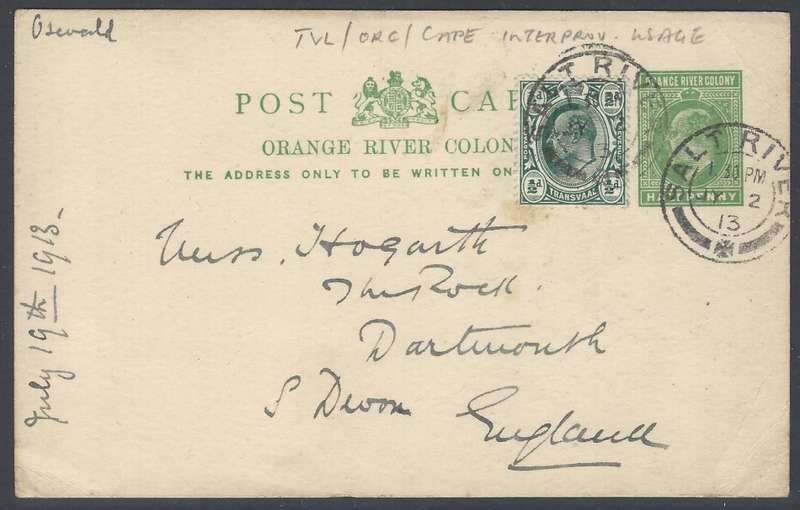 Oswald
TVL/ORC/CAPE INTERPROV. USAGE
POST CAR
ORANGE RIVER COLON
THE ADDRESS ONLY TO BE WRITTEN ON
ORANGE RIVER COLONY
HALFPENNY
½d
½d ½d
TRANSVAAL
SALT RIVE
SALT RIVER
PM
2
13
Miss. Hogarth
The Rock.
Dartmouth
S Devon
England
July 19th 1913.